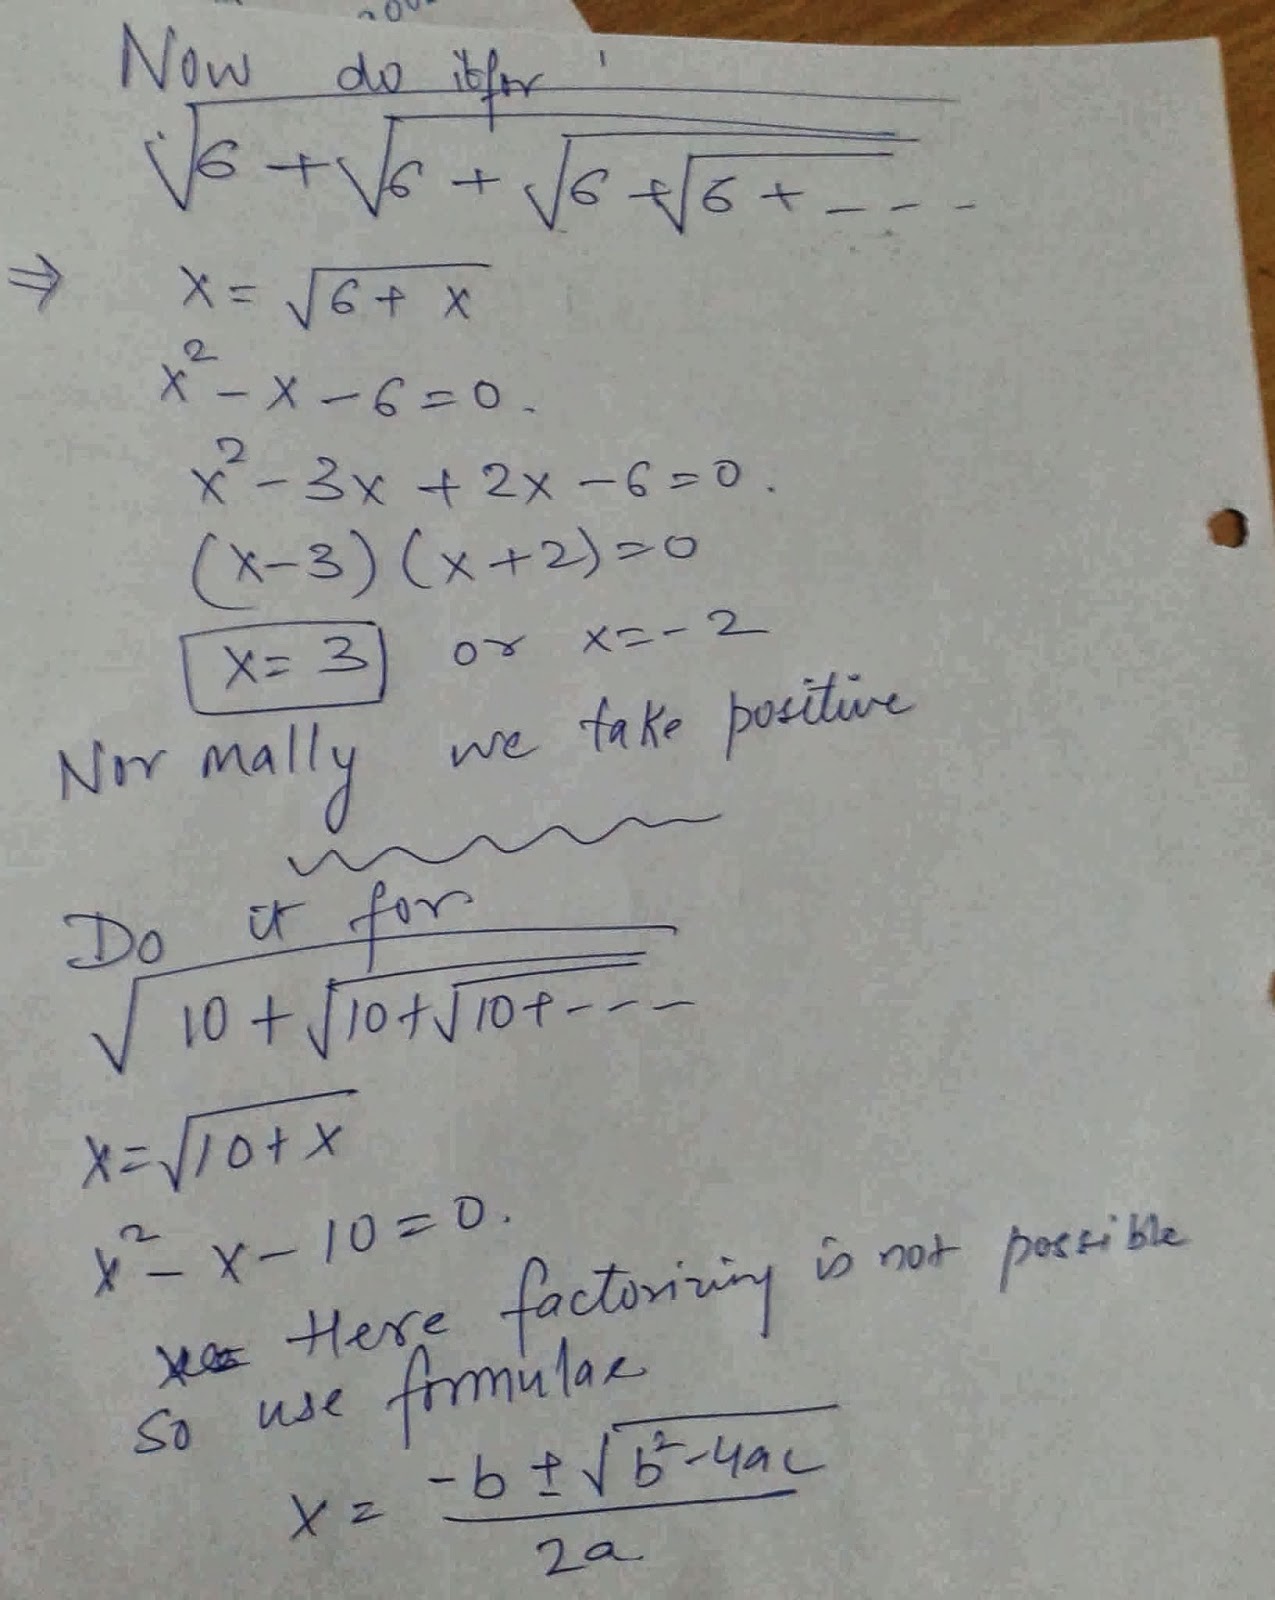 Now do it for
√6 + √6 + √6 + √6 + - - -
⇒ x = √6 + x
x² - x - 6 = 0.
x² - 3x + 2x - 6 = 0.
(x-3) (x+2) = 0
x = 3 or x = -2
Normally we take positive
Do it for
√10 + √10 + √10 + - - -
x = √10 + x
x² - x - 10 = 0.
Here factorizing is not possible
so use formulae
x = -b ± √b² - 4ac
2a